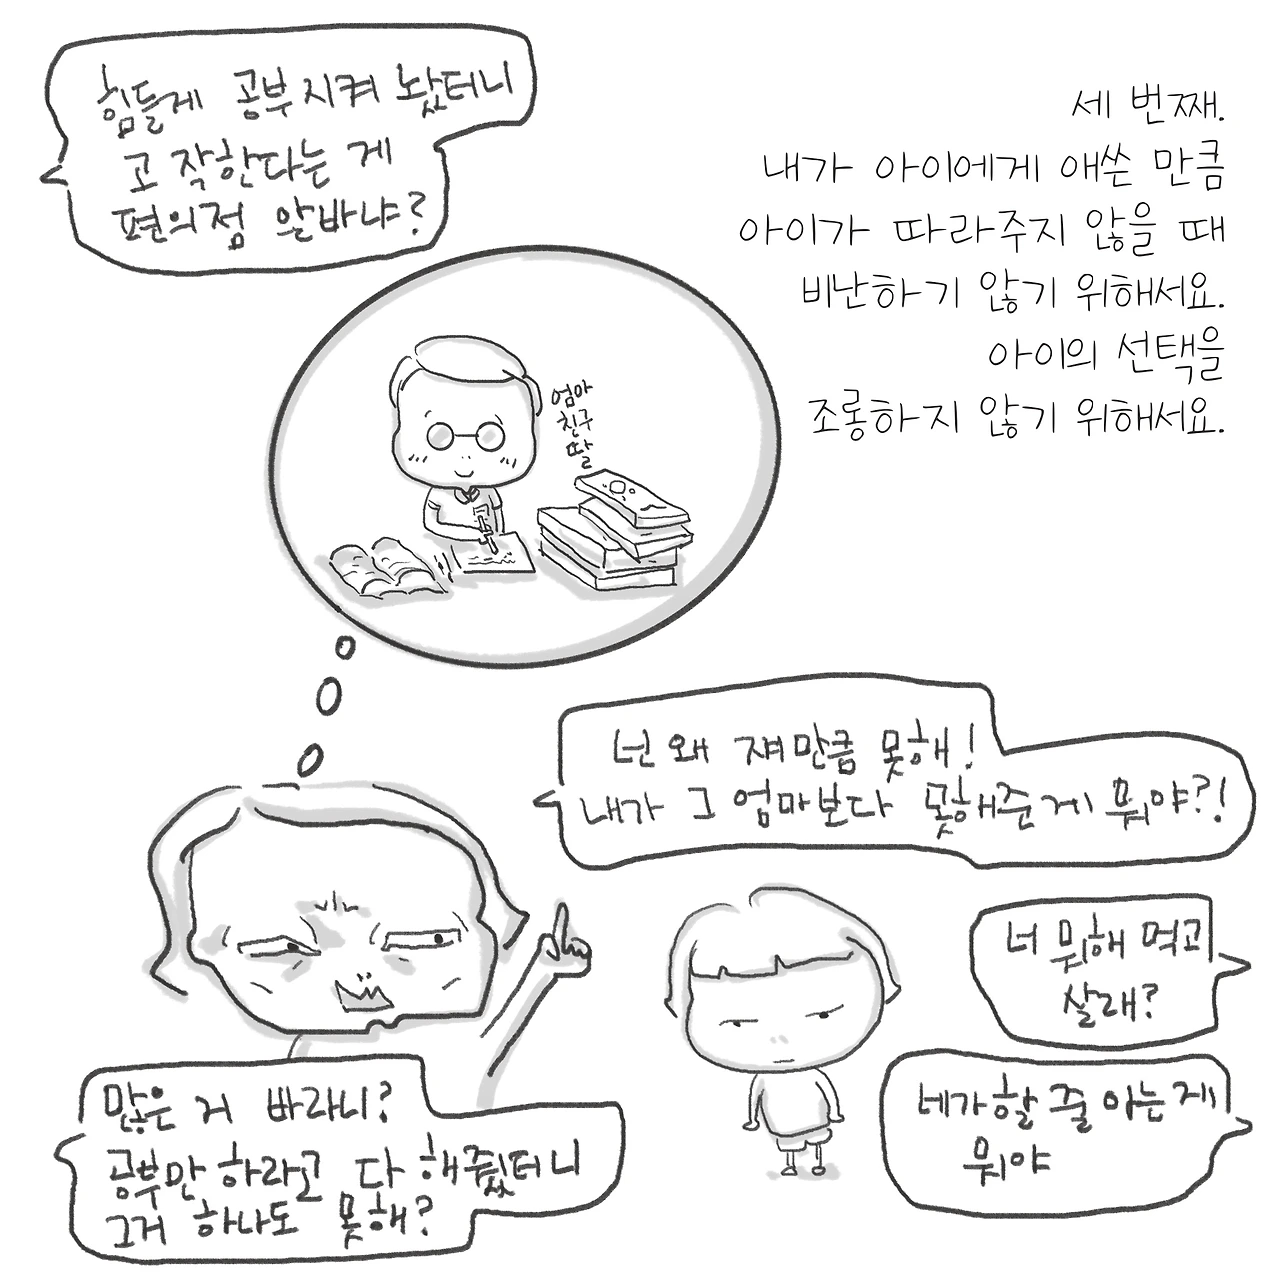 힘들게 공부시켜 놨더니
고작한다는 게
편의점 알바냐?
세 번째.
내가 아이에게 애쓴 만큼
아이가 따라주지 않을 때
비난하기 않기 위해서요.
아이의 선택을
조롱하지 않기 위해서요.
엄마
친구
딸
넌 왜 쟤만큼 못해!
내가 그 엄마보다 못해준게 뭐야?!
너 뭐해 먹고
살래?
네가할 줄 아는게
뭐야
많은 거 바라니?
공부만 하라고 다 해줬더니
그거 하나도 못해?